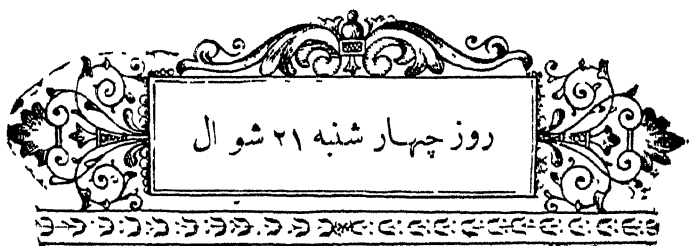 روز چهار شنبه ۲۱ شوال